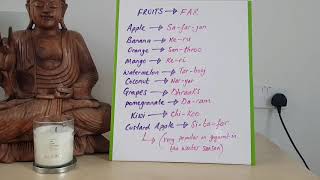 FRUITS → FAR
Apple → Sa-far-jan
Banana → Ke-ru
Orange → San-throo
Mango → Ke-ri
Watermelon → Tar-booj
Coconut → Nar-yar
Grapes → Dhraaks
Pomegranate → Da-ram
Kiwi → Chi-koo
Custard Apple → Si-ta-far
(Very popular in Gujarat in
the winter season)